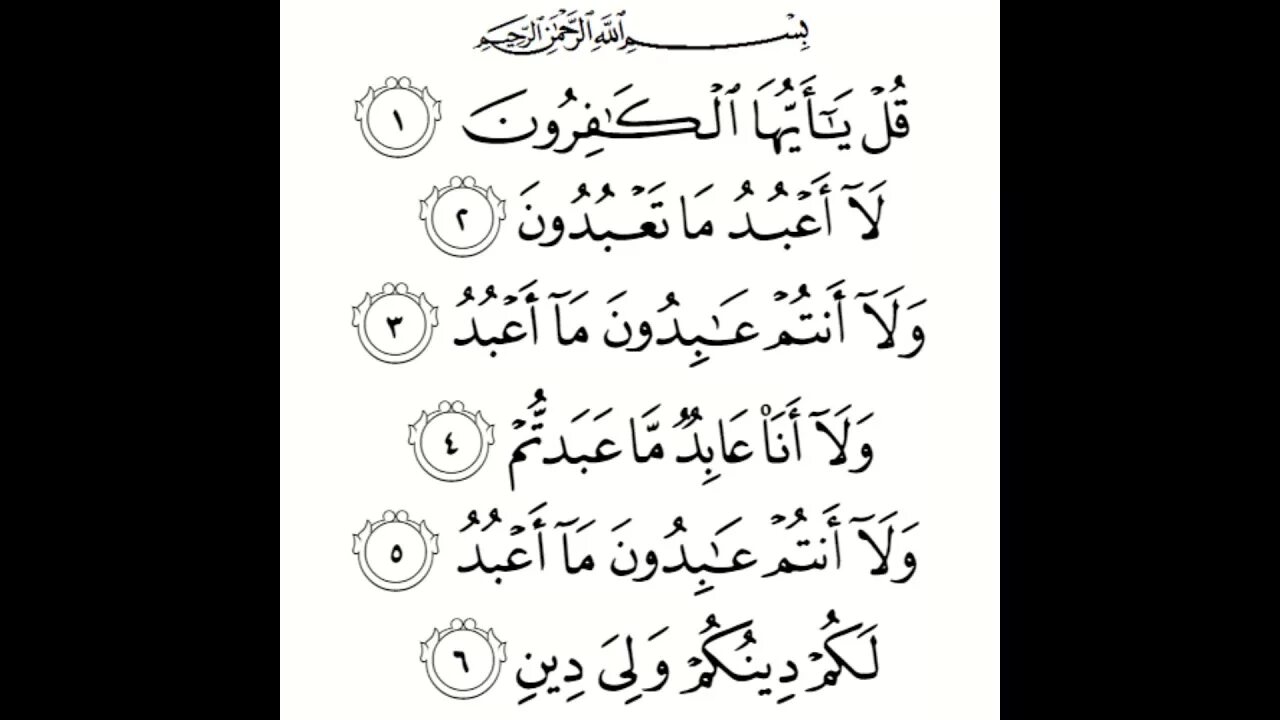 بِسْمِ ٱللَّهِ ٱلرَّحْمَٰنِ ٱلرَّحِيمِ
قُلْ يَٰٓأَيُّهَا ٱلْكَٰفِرُونَ ١
لَآ أَعْبُدُ مَا تَعْبُدُونَ ٢
وَلَآ أَنتُمْ عَٰبِدُونَ مَآ أَعْبُدُ ٣
وَلَآ أَنَا۠ عَابِدٌ مَّا عَبَدتُّمْ ٤
وَلَآ أَنتُمْ عَٰبِدُونَ مَآ أَعْبُدُ ٥
لَكُمْ دِينُكُمْ وَلِىَ دِينِ ٦